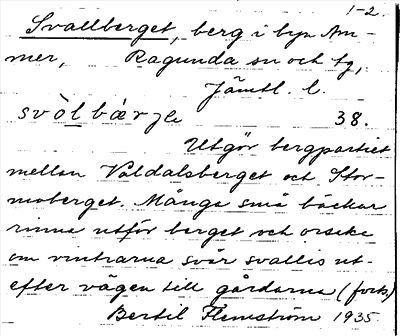 1-2.
Svallberget, berg i byn Am-
mer, Ragunda sn och tg,
Jämtl. l.
svòl bærje 38.
Utgör bergpartiet
mellan Valdalsberget och Stor-
moberget. Många små bäckar
rinna utför berget och orsaka
om vintrarna svår svallis ut-
efter vägen till gårdarna (forts)
Bertil Flemström 1935.